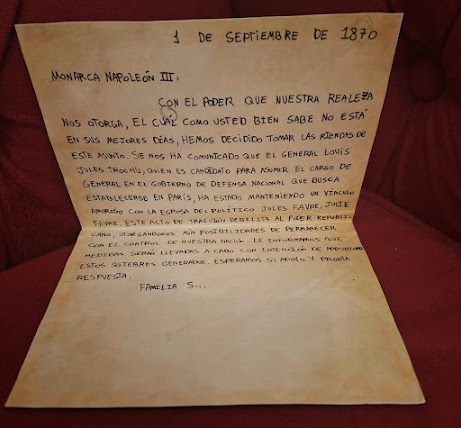 1 DE SEPTIEMBRE DE 1870
MONARCA NAPOLEÓN III:
CON EL PODER QUE NUESTRA REALEZA
NOS OTORGA, EL CUÁL COMO USTED BIEN SABE NO ESTÁ
EN SUS MEJORES DÍAS, HEMOS DECIDIDO TOMAR LAS RIENDAS DE
ESTE ASUNTO. SE NOS HA COMUNICADO QUE EL GENERAL LOUIS
JULES TROCHU, QUIEN ES CANDIDATO PARA ASUMIR EL CARGO DE
GENERAL EN EL GOBIERNO DE DEFENSA NACIONAL QUE BUSCA
ESTABLECERSE EN PARÍS, HA ESTADO MANTENIENDO UN VÍNCULO
AMOROSO CON LA ESPOSA DEL POLÍTICO JULES FAVRE, JULIE
FAVRE. ESTE ACTO DE TRAICIÓN DEBILITA AL PODER REPUBLI-
CANO, OTORGANDONOS AÚN POSIBILIDADES DE PERMANECER
CON EL CONTROL DE NUESTRA NACIÓN. LE INFORMAMOS QUE
MEDIDAS SERÁN LLEVADAS A CABO CON INTENCIÓN DE
ESTOS QUIEBRES GENERADOS. ESPERAMOS SU APOYO Y PRONTA
RESPUESTA.
FAMILIA S...